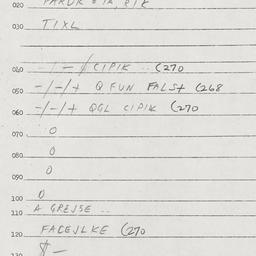 020
030 TIXL
040 -/ CIPIK .. (270
050 -/-/+ Q FUN FALS+ (268
060 -/-/+ QGL CIPIK (270
070 0
080 0
090 0
100 0
110 A GREJSE ..
120 FACEJLKE (270
130 $ -